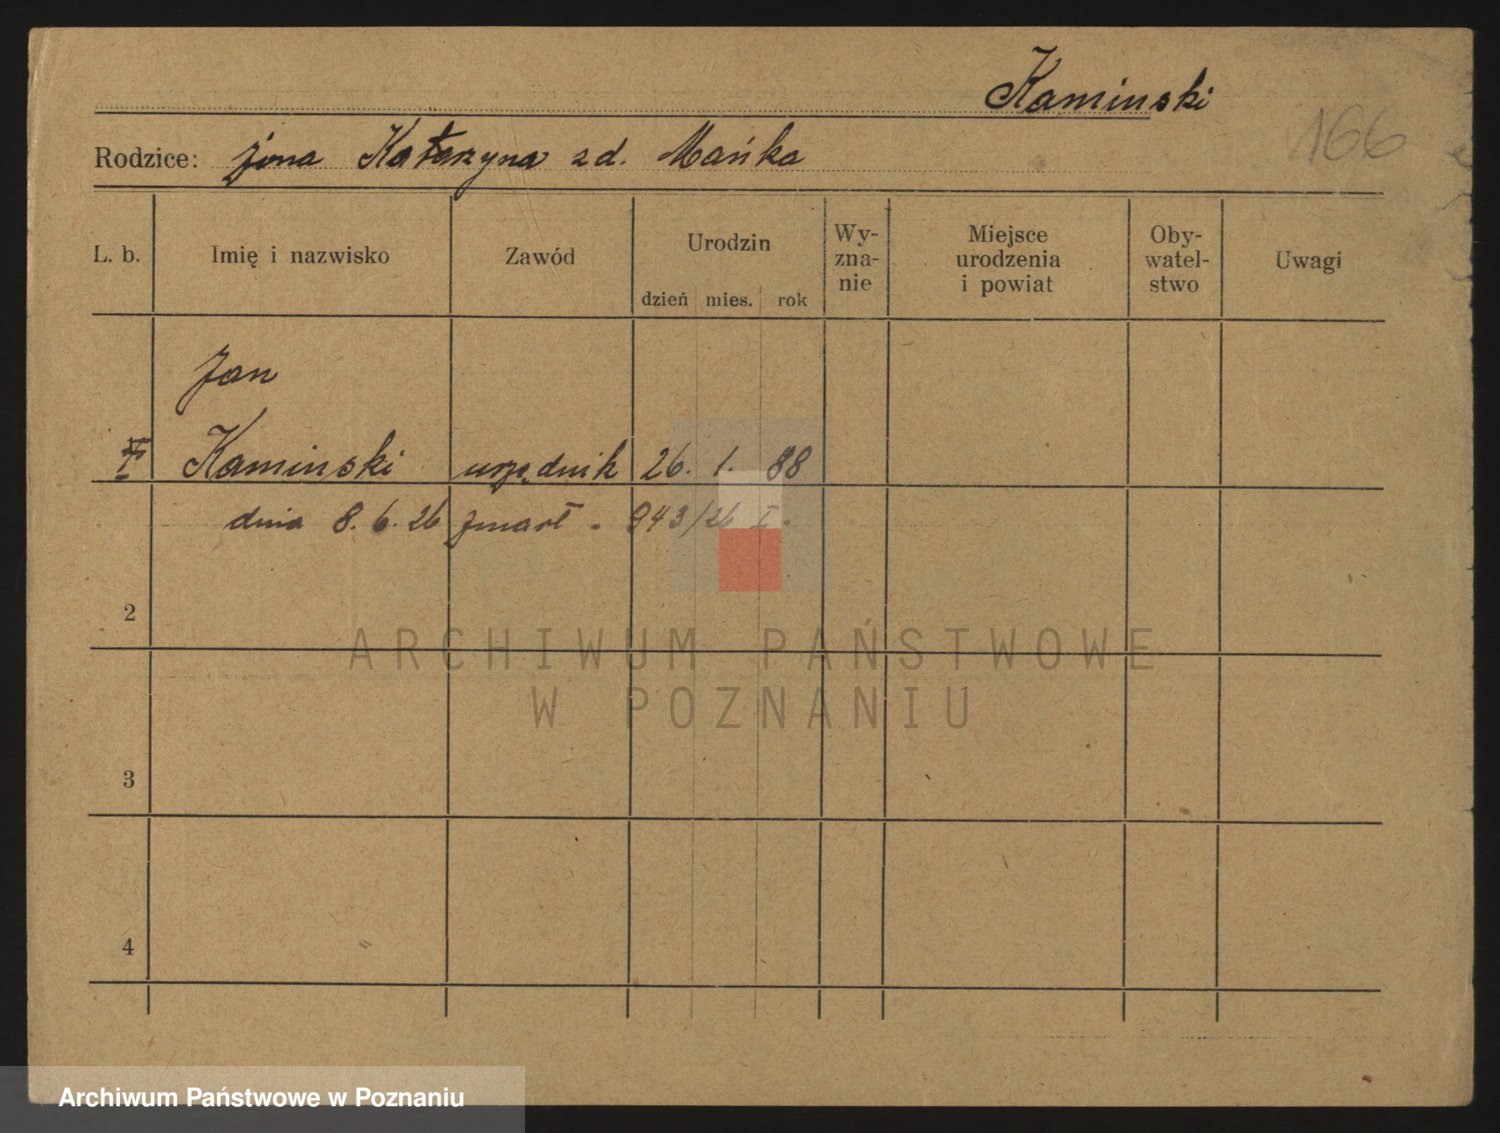 Kaminski
166
Rodzice: żona Katarzyna zd. Mańka
L. b. Imię i nazwisko Zawód Urodzin Wy-zna-nie Miejsce urodzenia i powiat Oby-watel-stwo Uwagi
dzień mies. rok
Jan
Kaminski urzędnik 26. 1. 88
dnia 8. 6. 26 zmarł - 943/26 I.
2
ARCHIWUM PAŃSTWOWE
W POZNANIU
3
4
Archiwum Państwowe w Poznaniu